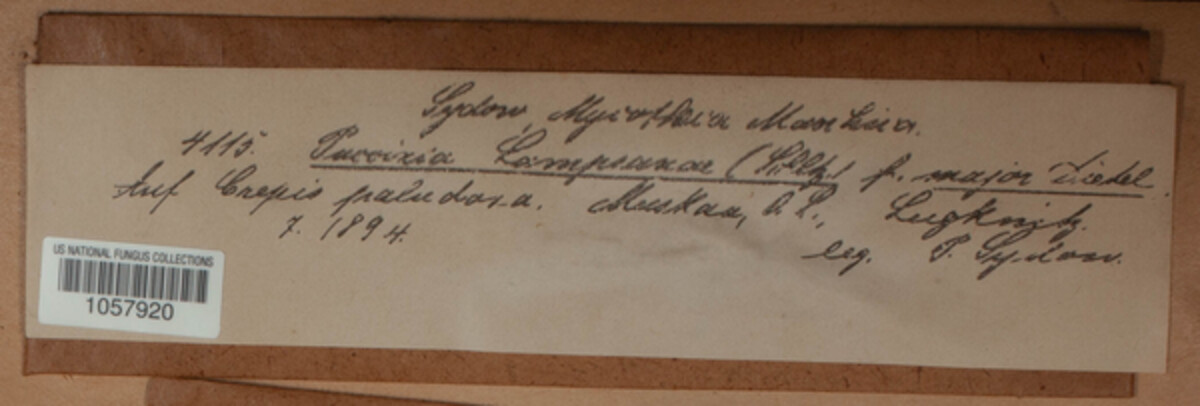 Sydow, Mycotheca Marchica.
4115. Puccinia Lampsanae (Schltz.) f. major Dietel.
Auf Crepis paludosa. Muskau, O. L., Lugknitz.
7. 1894. leg. P. Sydow.
US NATIONAL FUNGUS COLLECTIONS
1057920